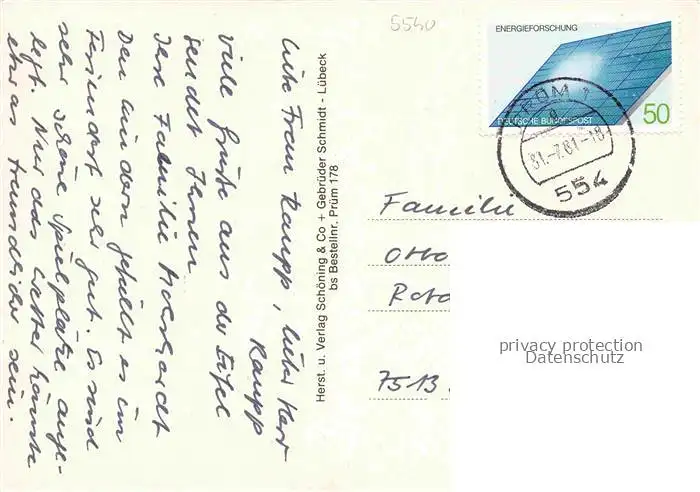 5540
Liebe Frau Kaupp, lieber Herr
Kaupp
Viele Grüße aus der Eifel
sendet Ihnen
Ihre Familie
Den Kindern gefällt es im
Feriendorf sehr gut. Es sind
sehr schöne Spielplätze ange-
legt. Nur das Wetter könnte
etwas freundlicher sein.
Herst. u. Verlag Schöning & Co + Gebrüder Schmidt - Lübeck
bs Bestellnr. Prüm 178
ENERGIEFORSCHUNG
DEUTSCHE BUNDESPOST
50
PRÜM 1
a
31.-7.81.-18
554
Familie
Otto
7513
privacy protection
Datenschutz